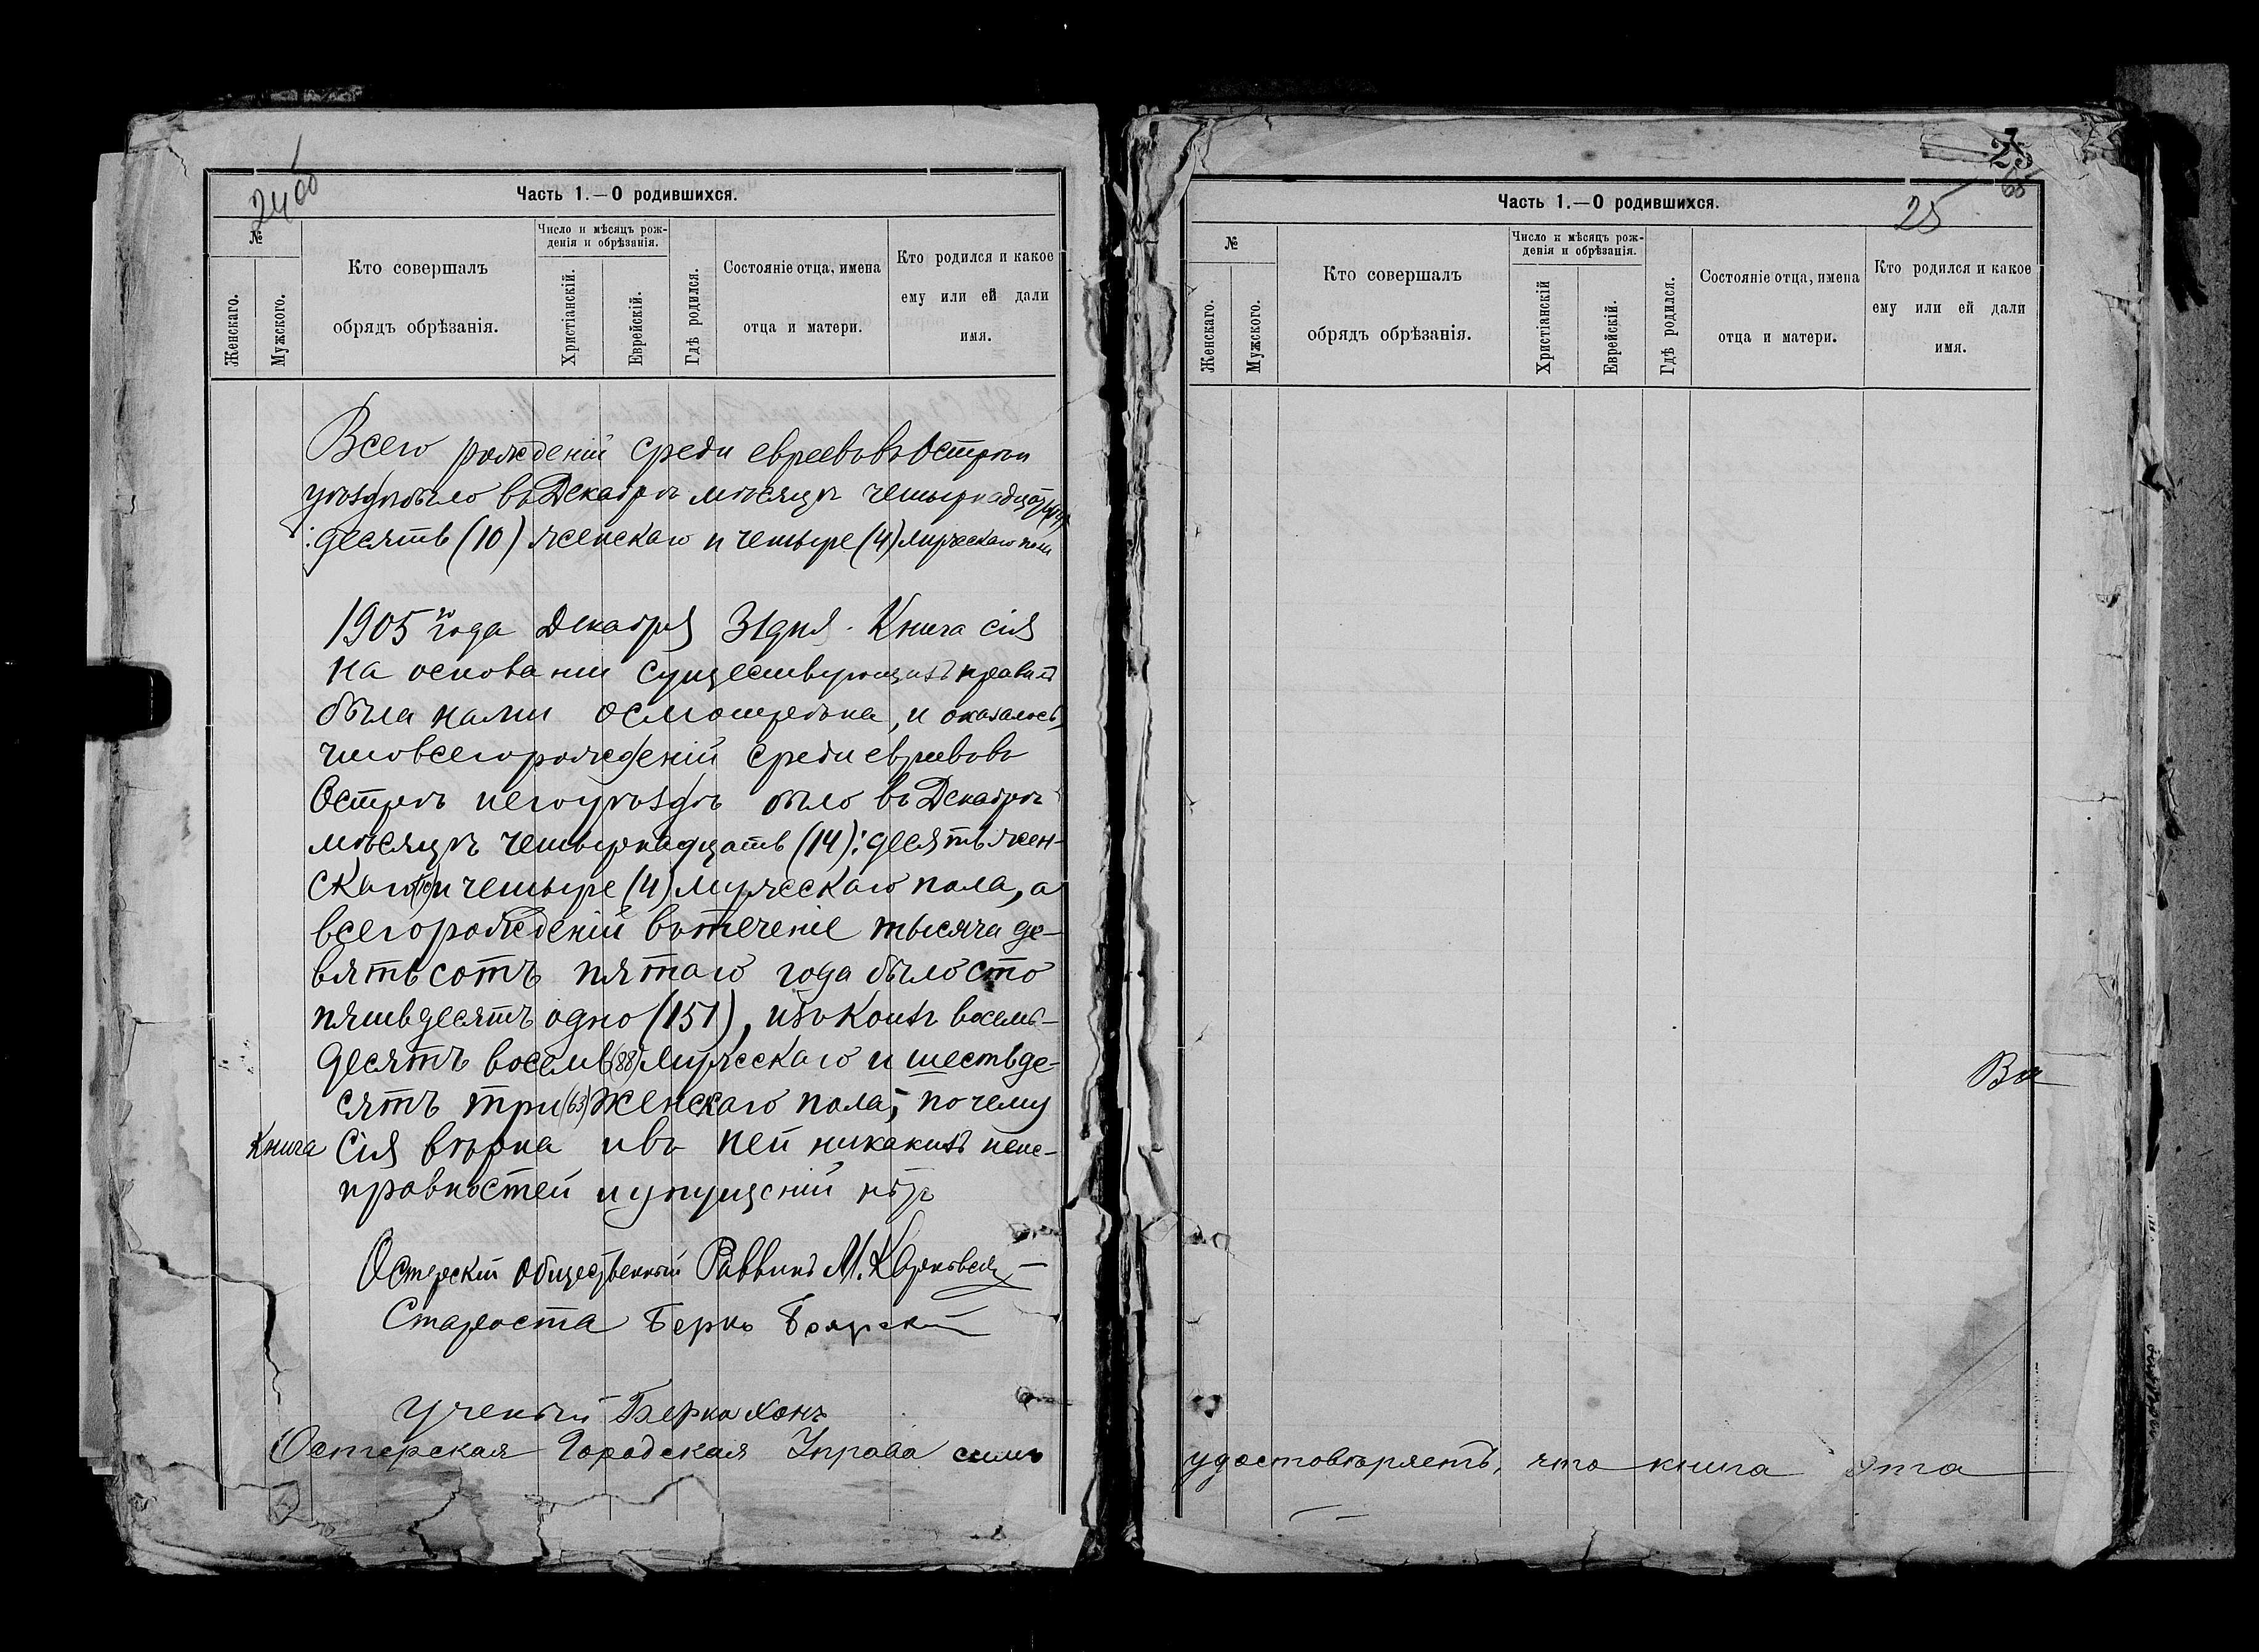 24 об
Часть 1.—О родившихся.
№
Женскаго.
Мужского.
Кто совершалъ
обрядъ обрѣзанія.
Число и мѣсяцъ рож-
денія и обрѣзанія.
Христіанскій.
Еврейскій.
Гдѣ родился.
Состояніе отца, имена
отца и матери.
Кто родился и какое
ему или ей дали
имя.
Всего рожденій среди евреевъ въ Острѣ и
уѣздѣ было въ Декабрѣ мѣсяцѣ четырнадцать (14)
: десять (10) женскаго и четыре (4) мужескаго пола
1905 го года Декабря 31 дня. Книга сія
на основаніи существующихъ правилъ
была нами осмотрѣна, и оказалось,
что всего рожденій среди евреевъ въ
Острѣ и его уѣздѣ было въ Декабрѣ
мѣсяцѣ четырнадцать (14): десять жен-
скаго (10) и четыре (4) мужескаго пола, а
всего рожденій въ теченіе тысяча де-
вятьсотъ пятаго года было сто
пятьдесятъ одно (151), изъ коихъ восемь-
десятъ восемь (88) мужескаго и шестьде-
сятъ три (63) женскаго пола, почему
Книга сія вѣрна и въ ней никакихъ неис-
правностей и упущеній нѣтъ
Остерскій Общественный Раввинъ М.
Староста Берко Боярскій
Ученый Берка Хонъ
Остерская Городская Управа симъ
25
65
Часть 1.—О родившихся.
25
№
Женскаго.
Мужского.
Кто совершалъ
обрядъ обрѣзанія.
Число и мѣсяцъ рож-
денія и обрѣзанія.
Христіанскій
Еврейскій.
Гдѣ родился.
Состояніе отца, имена
отца и матери.
Кто родился и какое
ему или ей дали
имя.
удостовѣряетъ, что книга эта